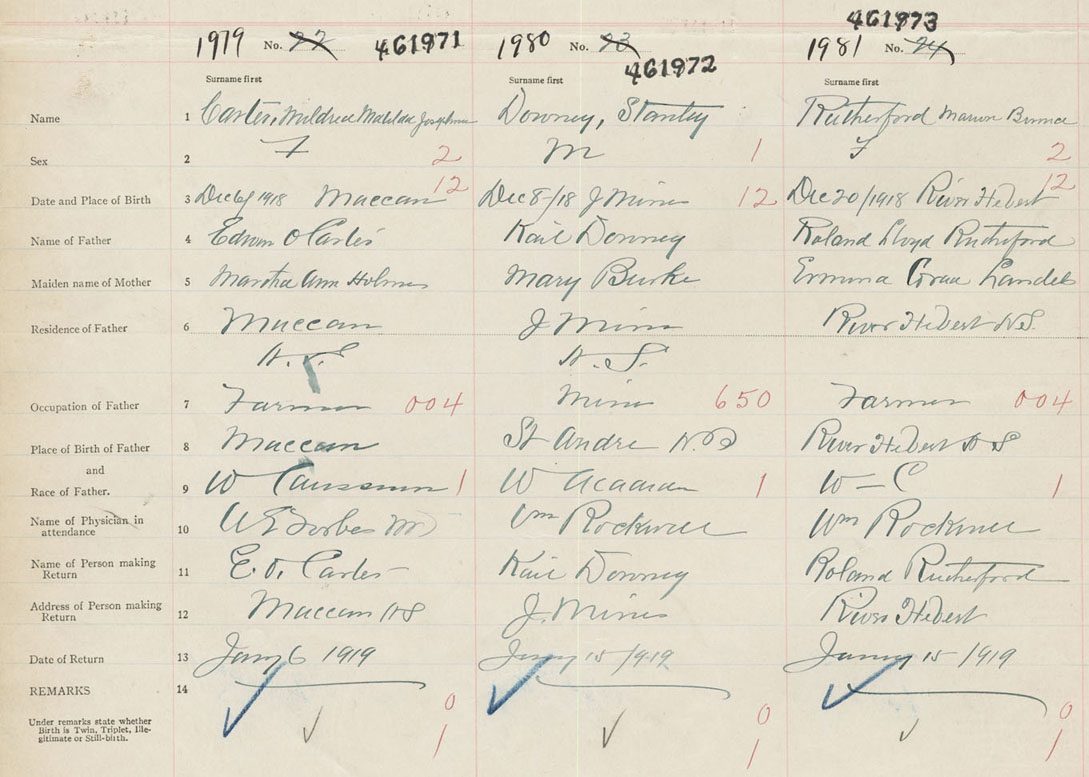 461973
1919 No. 22 461971 1980 No. 23 1981 No. 24
461972
Surname first Surname first Surname first
Name 1 Carter, Mildred Matilda Josephine Downey, Stanley Rutherford Marion
Sex 2 F 2 M 1 F 2
Date and Place of Birth 3 Dec 6/1918 Maccan 12 Dec 8/18 J Mines 12 Dec 20/1918 River Hebert 12
Name of Father 4 Edwin O Carter Downey Roland Lloyd Rutherford
Maiden name of Mother 5 Martha Ann Holmes Mary Burke Emma
Residence of Father 6 Maccan J Mines River Hebert N.S.
N.S. N.S.
Occupation of Father 7 Farmer 004 Miner 650 Farmer 004
Place of Birth of Father 8 Maccan St Andre N.B River Hebert N S
and
Race of Father. 9 W Caucasian 1 W Acadian 1 W – C 1
Name of Physician in
attendance 10 Forbes MD Wm Rockwell Wm Rockwell
Name of Person making
Return 11 E. O. Carter Downey Roland Rutherford
Address of Person making
Return 12 Maccan NS J. Mines River Hebert
Date of Return 13 Jany 6 1919 Jany 15/1919 Jany 15/1919
REMARKS 14
0 0 0
Under remarks state whether
Birth is Twin, Triplet, Ille-
gitimate or Still-birth.
1 1 1